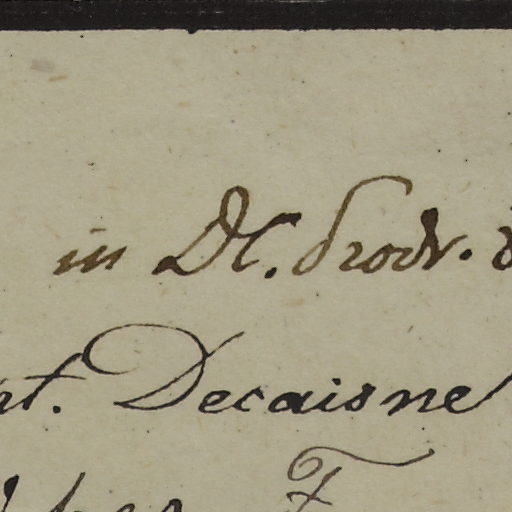 in DC. Prodr. 8
nt. Decaisne
F